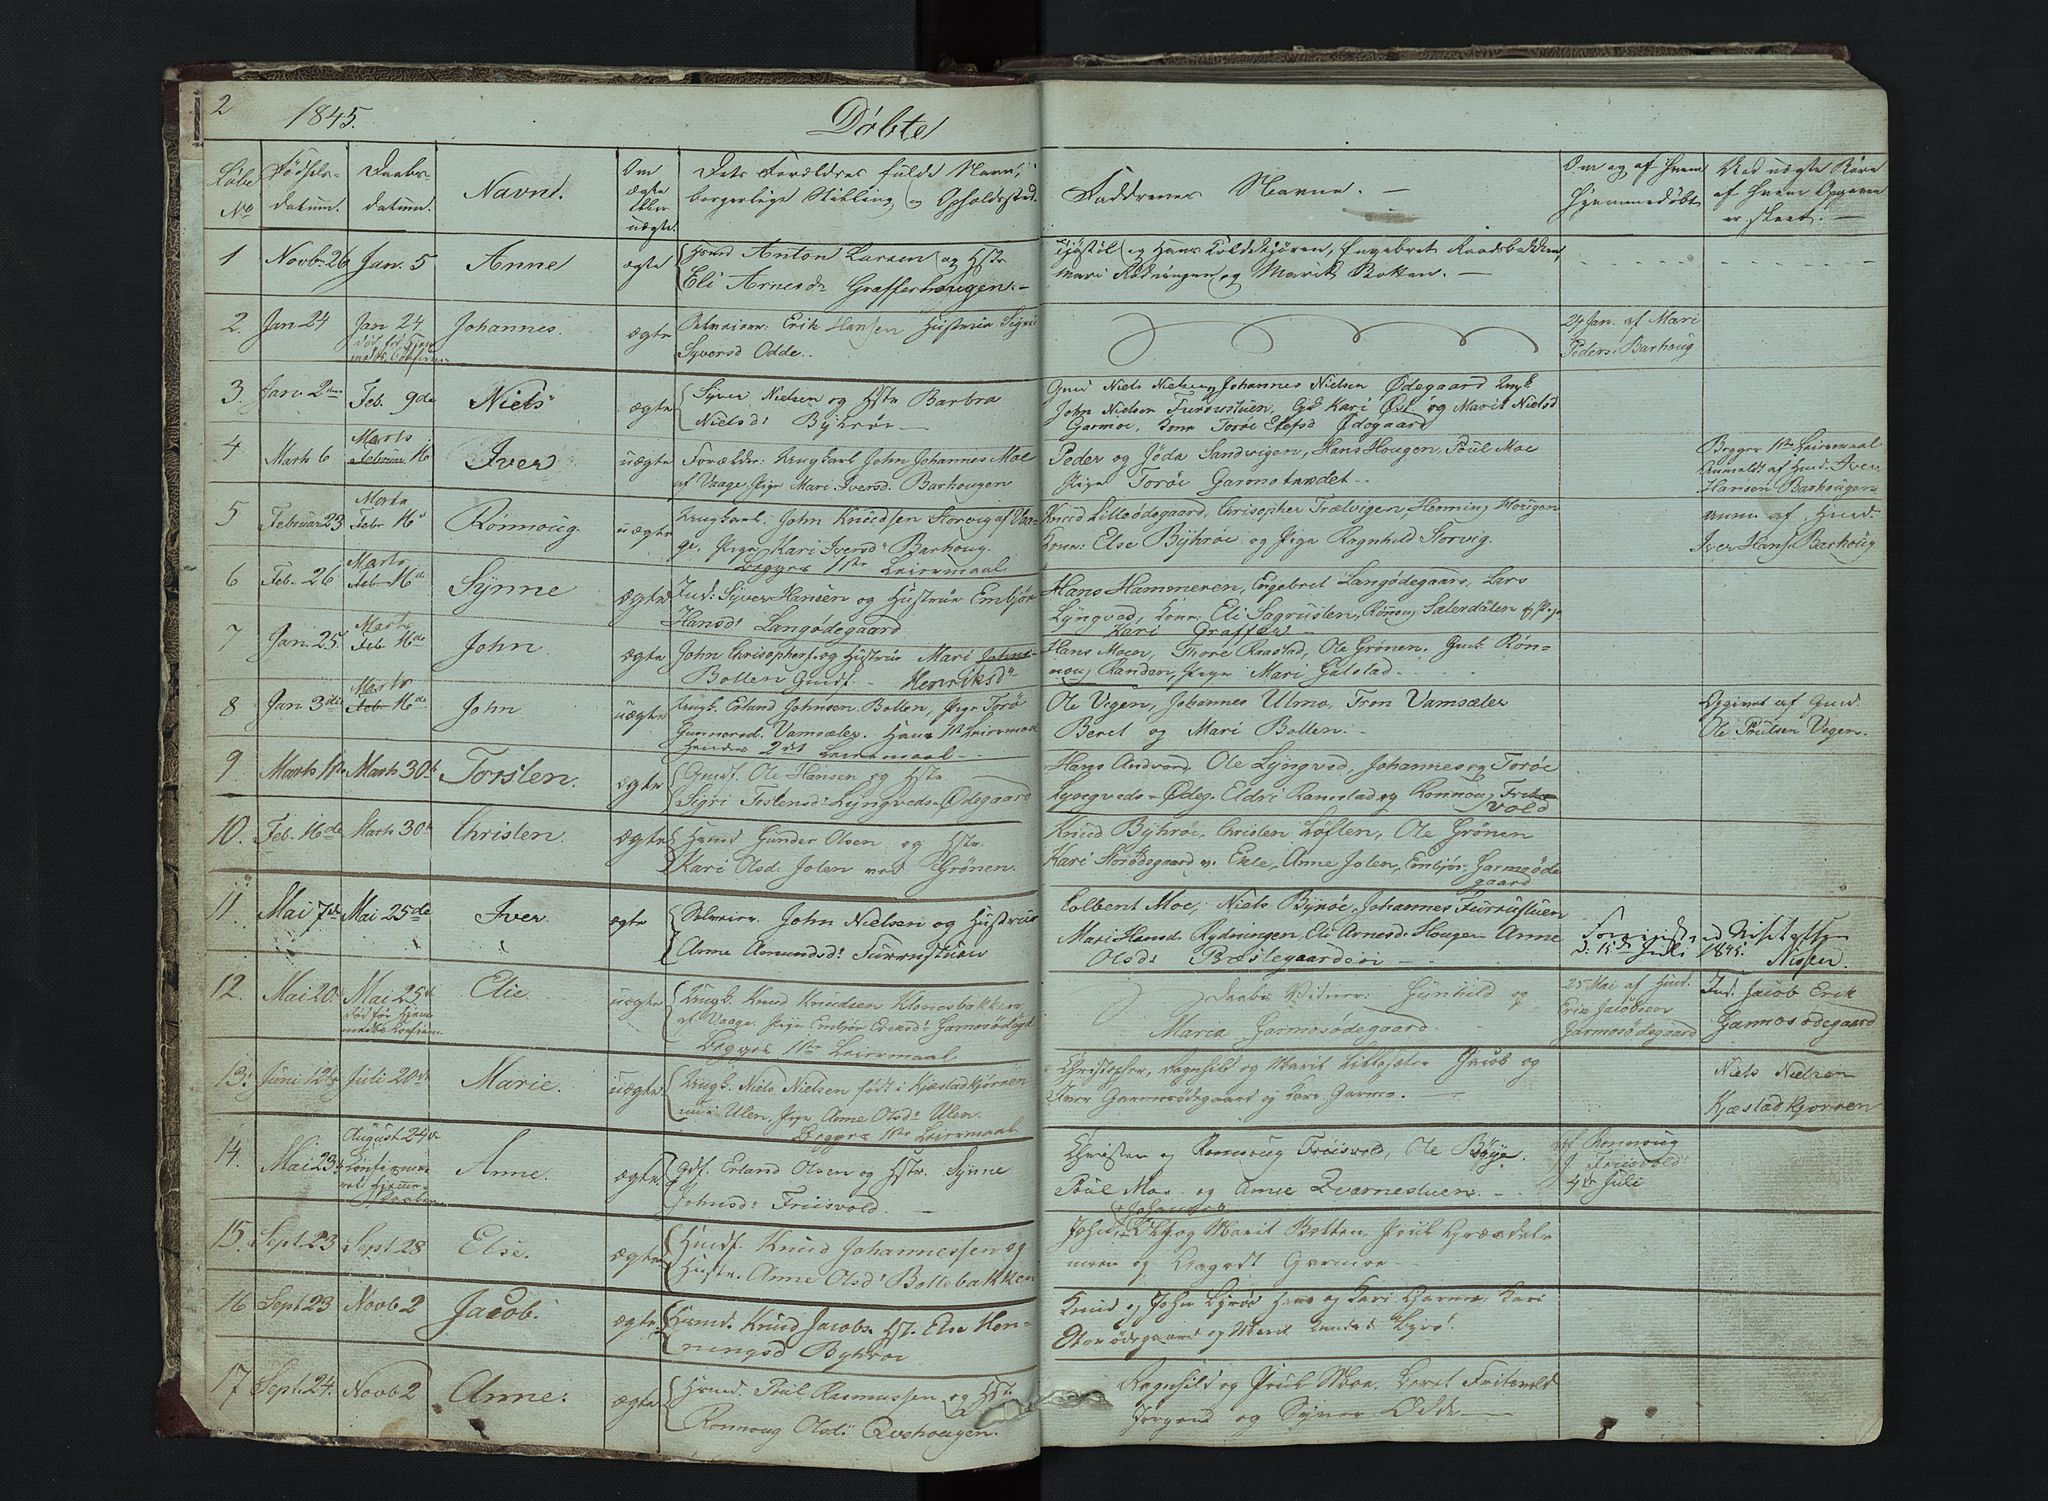 2 1845. Døbte
Løbe No Fødsels-datum. Daabs-datum. Navne. Om ægte eller uægte. Dets Forældres fulde Navne, borgerlige Stilling og Opholdssted. Faddrenes Navne. — Om og af hvem hjemmedøbt Ved uægte Børn af hvem Opgaven er skeet. —
1 Novbr 26 Jan. 5 Anne ægte Anton Larsen og Hstr
Eli Arnesdr Grafferhougen. —
Mari Rødningen og Marit Botten. —
2. Jan 24 Jan 24. Johannes. ægte Selveier: Erik Hansen Hustrue Sigri
Syversd Odde. 24 Jan. af Mari
Peders. Barhoug
3. Jan. 2den Feb. 9de Niels ægte Syver Nielsen og Hstr Barbra
Nielsdr Byhrøe
Gmd Niels Nielsen, Johannes Nielsen Ødegaard Ungk.
John Nielsen Furrustuen, Kari Øst og Marit Nielsd
Garmoe, Kone Torøe Ødegaard
4 Marts 6 Marts Februar 16 Iver uægte Forældre: Ungkarl John Johannes Moe
af Vaage, Pige Mari Iversd. Barhougen
Peder og Jøda Sandvigen, Hans Hougen, Poul Moe
Pige Torøe Garmostrædet.
Begges 1ste Leiermaal
anmeldt af Hmd. Iver
Hansen Barhougen
5 Februar 23 Marts Febr 16 Rønnoug uægte Ungkarl: John Knudsen Storvig af Vaa-
ge, Pige Kari Iversdr Barhoug.
Begges 1ste Leiermaal
Knud Lilleødegaard, Chrisopher Trælvigen Henning
Kone: Else Byhrøe og Pige Ragnhild Storvig.
anm. af Hmd.
Iver Hans. Barhoug
6 Feb. 26 Marts Feb 16de Synne ægte Ind: Syver Hansen og Hustrue Embjør
Hansdr Langødegaard
Hans Hammeren, Engebret Langødegaard, Lars
Lyngved, Kone: Eli Sagrusten, Rønnoug Sælerdalen og Pige
Kari Graffer
7 Jan. 25. Marts Feb 16de John ægte John Chrisophers. og Hustrue Mari Johns
Botten Gmdf. — Henriksdr
Hans Moen, Thore Raastad, Ole Grønen. Gmk. Røn-
noug Randen, Pige Mari Galstad
8 Jan. 3die Marts Feb 16de John uægte Ungk. Erland Johnsen Botten, Pige Torø
Gunnarsd. Vamsæter. Hans 1ste Leiermaal
hendes 2det Leiermaal —
Ole Vigen, Johannes Ulmo, Tron Vamsæter
Beret og Mari Botten. —
Opgivet af Gmd.
Ole Poulsen Vigen.
9 Marts Marts 30te Torsten. ægte Gmdf. Ole Hansen og Hstr
Sigri Tostensdr Lyngveds-Ødegaard
Hans Andvord, Ole Lyngved, Johannes og Torøe
Lyngveds-Ødeg. Eldri Ramstad og Rønnoug Friis-
vold
10. Feb. 16de Marts 30te Christen. ægte Hmd Gunder Olsen og Hstr.
Kari Olsd. Jolen ved Grønen.
Knud Byhrøe. Christen Løften, Ole Grønen
Kari Storødegaard v. Ekle, Anne Jolen, Embjør Garmosøde
gaard
11. Mai 7de Mai 25de Iver ægte Selveier. John Nielsen og Hustrue
Anne Amundsdr Furrustuen
Colbent Moe, Niels Byrøe, Johannes Furrustuen
Mari Hansd. Rydningen, Eli Arnesdr Hougen Anne
Olsdr Præstegaardeie —
Foreviist ved Visitatsen
d. Juli 1845. Nissen.
12. Mai 20. Mai 25de Elie uægte Ungk. Knud Knudsen Klonesbakken
af Vaage, Pige Embjør Eriksdr Garmosødegd
Begges 1ste Leiermaal
Daabs Vidner: Gunhild og
Maria Garmosødegaard.
25 Mai af Hmd.
Eric Jacobsen
Garmosødegaard
Ind. Jacob Erik
Garmosødegaard
13. Juni 12te Juli 20de Marie. uægte Ungk. Niels Nielsen født i Kjæstadkjørren
nu i Ulen, Pige Anne Olsdr Ulen.
Begges 1ste Leiermaal
Christopher, Ragnhild og Marit Lillesæter Jacob og
Iver Garmosødegaard og Kari Garmo.
Niels Nielsen
Kjæstadkjørren
14. Mai 23 August 24de Anne. ægte Gdf. Erland Olsen og Hstr. Synne
Johnsdr Friisvold. —
Christen og Rønnoug Friisvold, Ole Bøye.
Poul Moe og Anne Qværnestuen. —
af Rønnoug
Friisvold
4de Juli
15. Sept 23 Sept 28 Else. ægte Huusf. Knud Johannessen og
Hustr. Anne Olsdr Bottebakken
Johannes
John, Ole og Marit Botten,
og Garmoe —
16 Sept 23 Novb 2 Jacob. ægte Huusmd. Knud Jacobs. Hst. Else Hen-
ningsd Byhrøe
Knud og John Byrøe Hans og Kari Garmo Kari
Storødegaard og Marit Byrø.
17 Sept. 24. Novb 2 Anne. ægte Hmd. Poul Rasmussen og Hst.
Ronnoug Olsdr Qvehougen.
Ragnhild og Moe. Beret Fritsvold
Jørgen og Syver Odde —